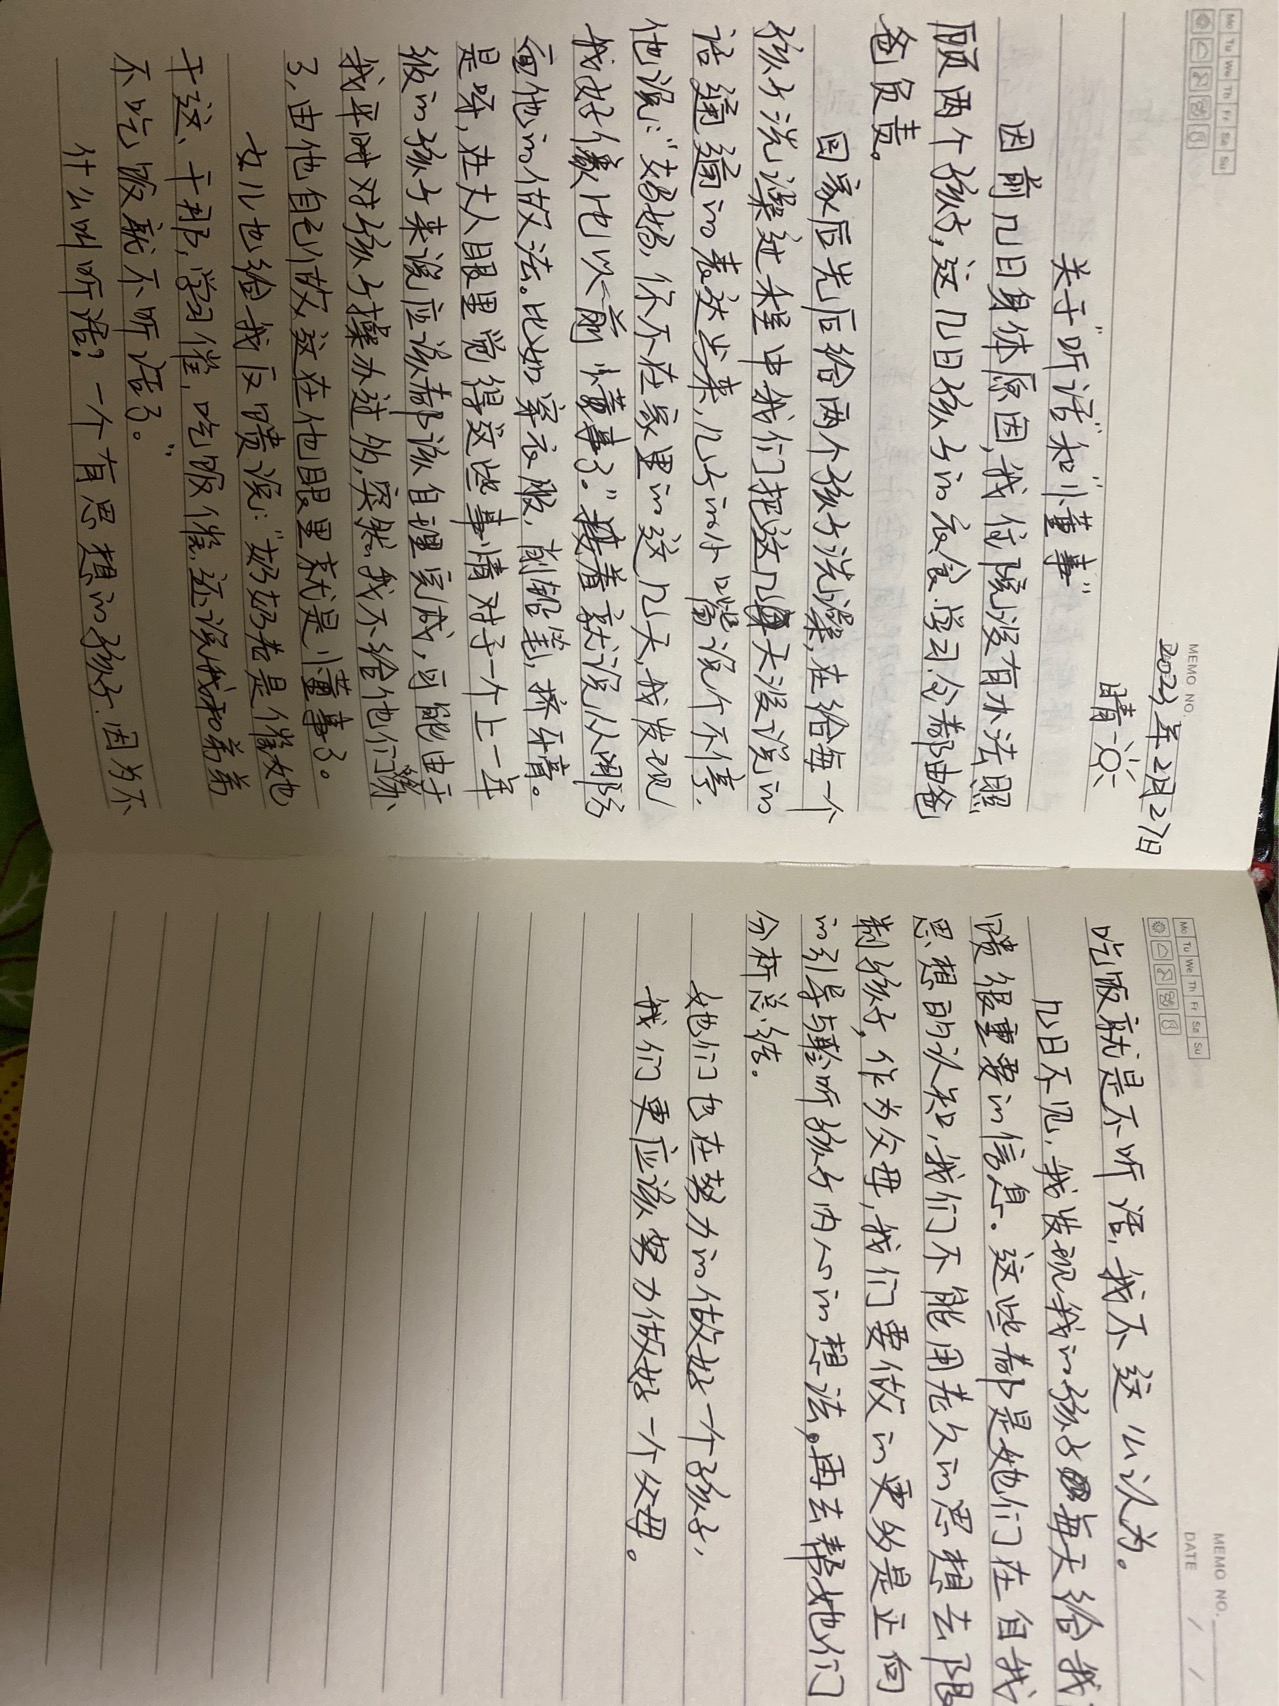 Mo Tu We Th Fr Sa Su
MEMO NO.
2023年2月27日
晴
关于"听话"和"懂事"
因前几日身体原因,我住院没有办法照
顾两个孩子,这几日孩子的衣食.学习.全都由爸
爸负责。
回家后先后给两个孩子洗澡,在给每一个
孩子洗澡过程中我们把这几天没说的
话通通的表达出来,儿子的小嘴说个不停.
他说:"妈妈,你不在家里的这几天,我发现
我好像比以前懂事了。"接着就说从哪方
面他的做法。比如穿衣服,削铅笔,挤牙膏。
是呀,在大人眼里觉得这些事情对于一个上一年
级的孩子来说应该都该自理完成,可能由于
我平时对孩子操办过的,突然我不给他们
了,由他自己做这在他眼里就是懂事了。
女儿也给我反馈说:"奶奶老是催她
干这、干那,学习催,吃饭催.还说我和弟弟
不吃饭就不听话了。"
什么叫听话?一个有思想的孩子.因为不
Mo Tu We Th Fr Sa Su
MEMO NO.
DATE / /
吃饭就是不听话,我不这么认为。
几日不见,我发现我的孩子每天给我
馈很重要的信息。这些都是她们在自我
思想的认知,我们不能用老久的思想去限
制孩子,作为父母,我们要做的更多是正向
的引导与聆听孩子内心的想法。再去帮她们
分析总结。
她们也在努力的做好一个孩子,
我们更应该努力做好一个父母。